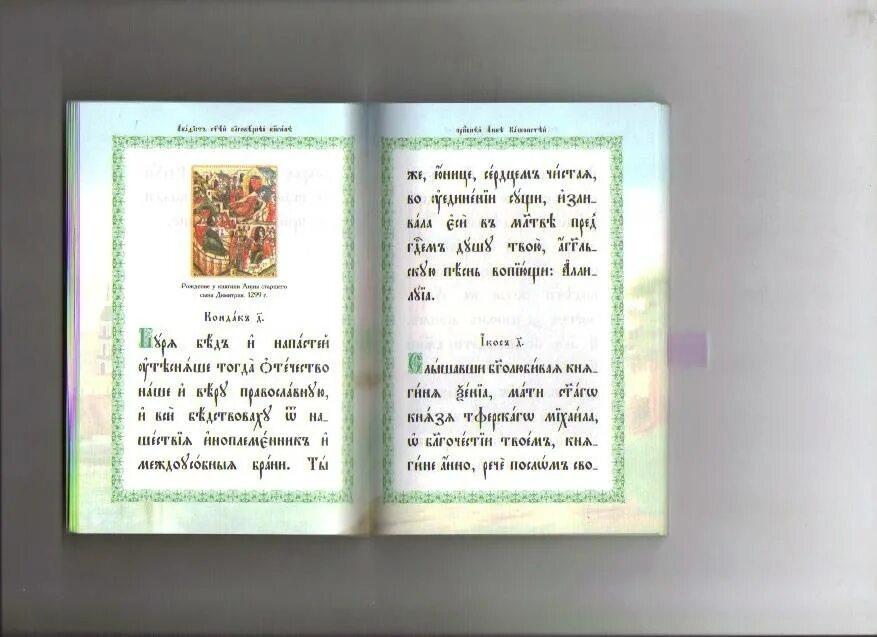 Акаѳістъ ст҃ѣй бл҃говѣ́рнѣй кнѧги́нѣ
Рождение у княгини Анны старшего
сына Димитрия. 1299 г.
Конда́къ г҃.
Бꙋ́рѧ бѣ́дъ и҆ напа́стей
ѹ҆тѣснѧ́ше тогда̀ ѻ҆те́чество
на́ше и҆ вѣ́рꙋ правосла́внꙋю,
и҆ всѝ бѣ́дствовахꙋ ѿ на-
ше́ствїѧ и҆ноплеме́нникъ и҆
междоꙋсо́бныѧ бра́ни. Ты́
прп҇бнѣй А҆́ннѣ Ка́шинстѣй
же, ю҆́нице, се́рдцемъ чи́стаѧ,
во ᲂу҆едине́нїи сꙋ́щи, и҆зли-
ва́ла є҆сѝ въ мл҃твѣ пред̾
гд҇емъ дꙋ́шꙋ твою̀, а҆́гг҃ль-
скꙋю пѣ́снь вопїю́щи: А҆лли-
лꙋ́їа.
І҆́косъ г҃.
Слы́шавши бг҃олюби́ваѧ кнѧ-
ги́нѧ ѯе́нїа, ма́ти ст҃а́гѡ
кнѧ́зѧ тфе́рскагѡ мїхаи́ла,
ѡ҆ бл҃гоче́стїи твое́мъ, кнѧ-
ги́не а҆́нно, речѐ послѡ́мъ сво-